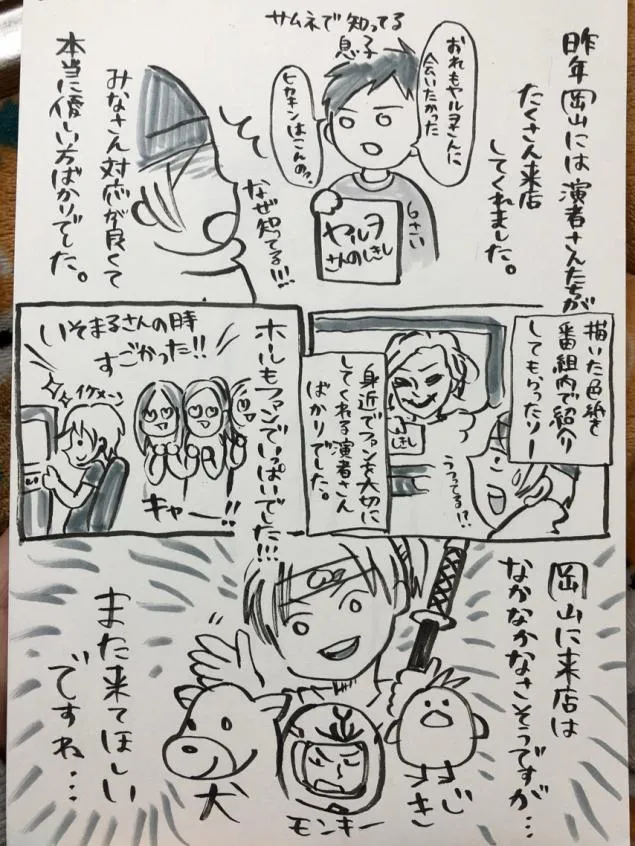 昨年岡山には演者さんたちが
たくさん来店
してくれました。
サムネで知ってる
息子
おれもヤルヲさんに
会いたかった
ヒカキンはこんの？
6さい
ヤルヲ
さんのしきし
なぜ知てる!!!
みなさん対応が良くて
本当に優しい方ばかりでした。
描いた色紙を
番組内で紹介
してもらったりー
しきし
うつってる!?
身近でファンを大切に
してくれる演者さん
ばかりでした。
ホールもファンでいっぱいでした!!!
いそまるさんの時
すごかった!!
イケメ〜ン
キャー!!
岡山に来店は
なかなかなさそうですが…
また来てほしい
ですね…
犬
モンキー
きじ